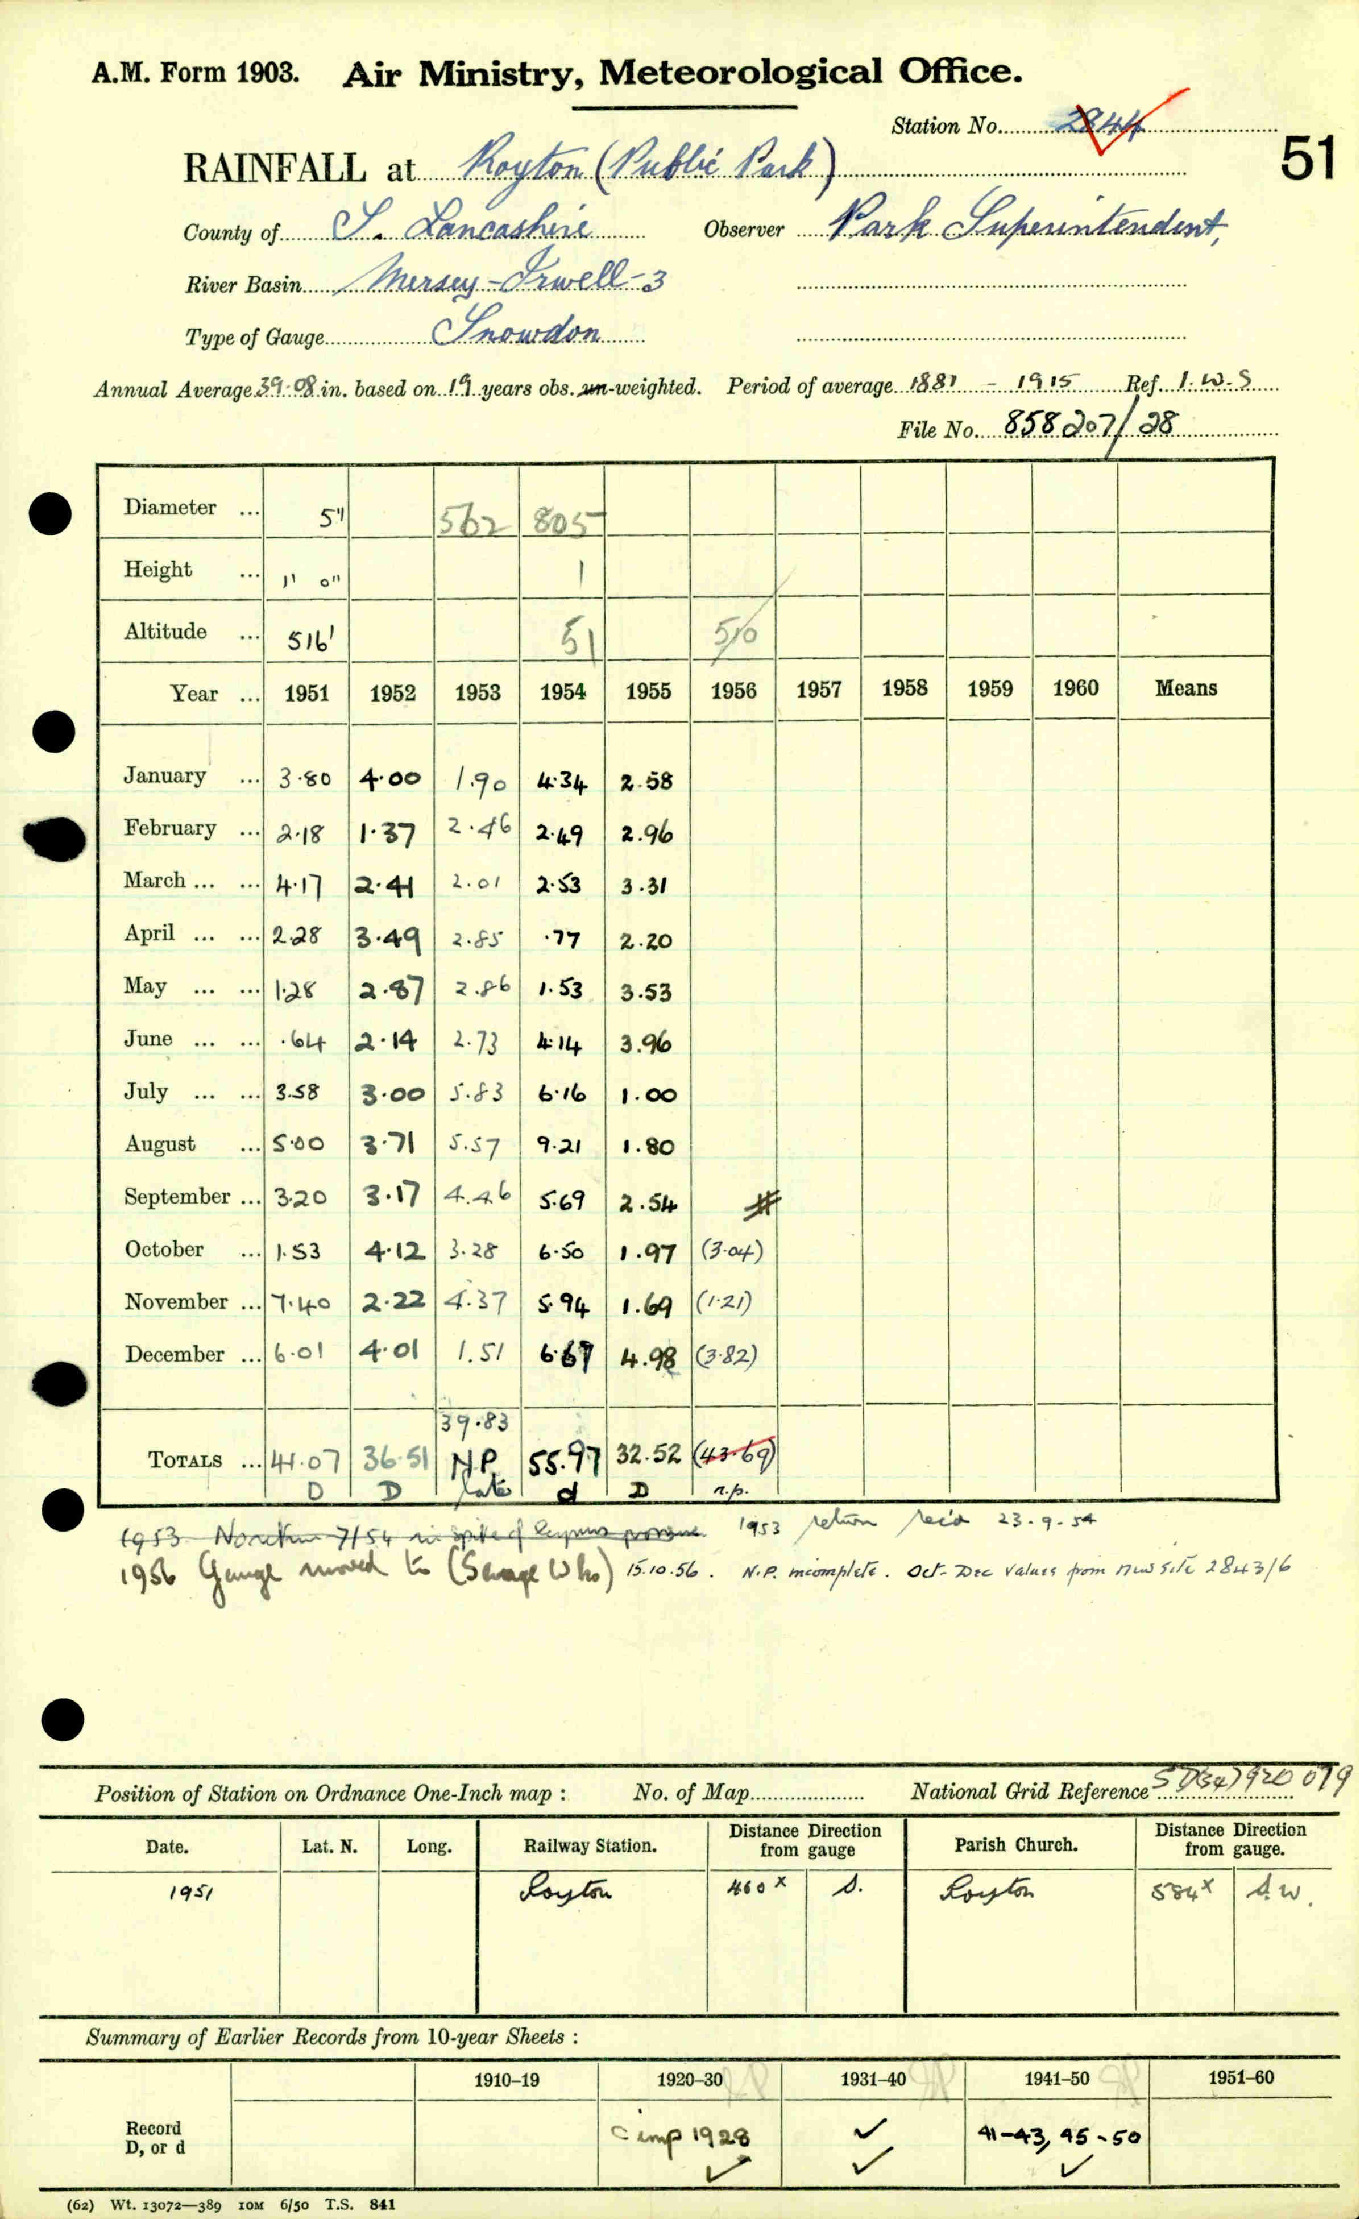 A.M. Form 1903. Air Ministry, Meteorological Office.
Station No. 2844
51
RAINFALL at Royton (Public Park)
County of S. Lancashire Observer Park Superintendent,
River Basin Mersey-Irwell-3
Type of Gauge Snowdon
Annual Average 39.08 in. based on 19 years obs. un-weighted. Period of average 1881 - 1915 Ref. I.W.S
File No. 858207/28
Diameter ... 5" 562 805
Height ... 1' 0" 1
Altitude ... 516' 51 510
Year ... 1951 1952 1953 1954 1955 1956 1957 1958 1959 1960 Means
January ... 3.80 4.00 1.90 4.34 2.58
February ... 2.18 1.37 2.46 2.49 2.96
March ... ... 4.17 2.41 2.01 2.53 3.31
April ... ... 2.28 3.49 2.85 .77 2.20
May ... ... 1.28 2.87 2.86 1.53 3.53
June ... ... .64 2.14 2.73 4.14 3.96
July ... ... 3.58 3.00 5.83 6.16 1.00
August ... 5.00 3.71 5.57 9.21 1.80
September ... 3.20 3.17 4.46 5.69 2.54 #
October ... 1.53 4.12 3.28 6.50 1.97 (3.04)
November ... 7.40 2.22 4.37 5.94 1.69 (1.21)
December ... 6.01 4.01 1.51 6.67 4.98 (3.82)
39.83
TOTALS ... 41.07 36.51 N.P. 55.97 32.52 (43.69)
D D late d D n.p.
1953 No return 7/54 in spite of 1953 return rec'd 23.9.54
1956 Gauge moved to (Sewage Wks) 15.10.56. N.P. incomplete. Oct-Dec values from new site 2843/6
Position of Station on Ordnance One-Inch map : No. of Map National Grid Reference SD(34)920 079
Date. Lat. N. Long. Railway Station. Distance Direction from gauge Parish Church. Distance Direction from gauge.
1951 Royton 460x S. Royton 584x S.W.
Summary of Earlier Records from 10-year Sheets :
1910–19 1920–30 1931–40 1941–50 1951–60
Record D, or d C imp 1928 ✓ ✓ ✓ 41-43, 45-50 ✓
(62) Wt. 13072—389 10M 6/50 T.S. 841